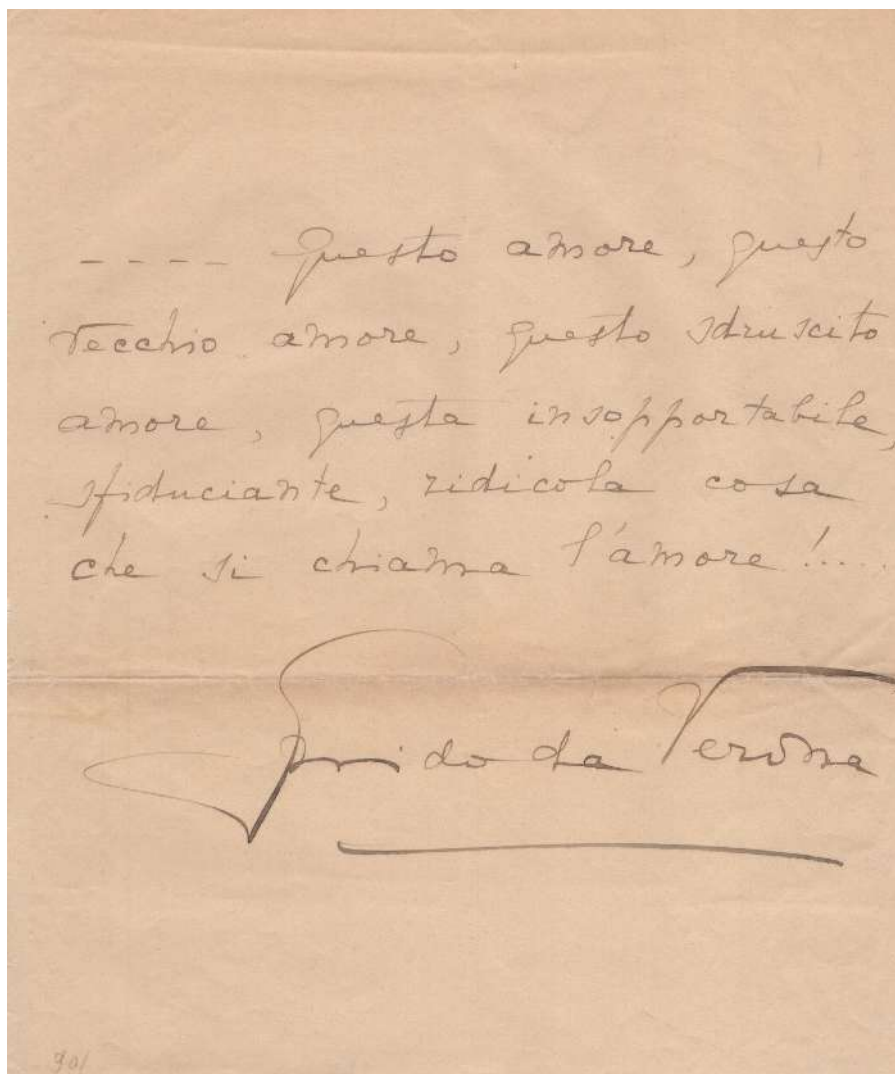 ---- Questo amore, questo
vecchio amore, questo sdruscito
amore, questa insopportabile,
sfiduciante, ridicola cosa
che si chiama l'amore!.....
Guido da Verona
901